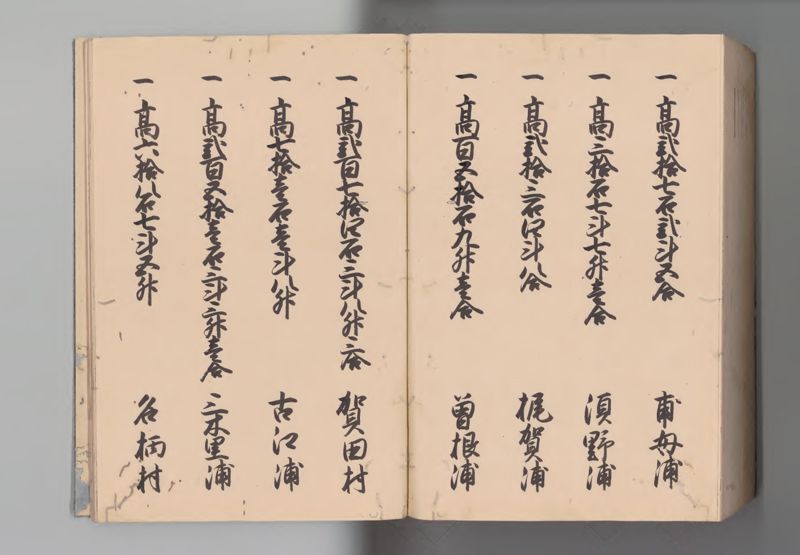 一高弐拾七石弐斗五合 甫母浦
一高三拾石七斗七舛壱合 須野浦
一高弐拾三石四斗八合 梶賀浦
一高百五拾石九舛壱合 曽根浦
一高弐百七拾四石三斗八舛三合 賀田村
一高七拾壱石壱斗八舛 古江浦
一高弐百五拾壱石三斗六舛壱合 三木里浦
一高六拾八石七斗五舛 名柄村